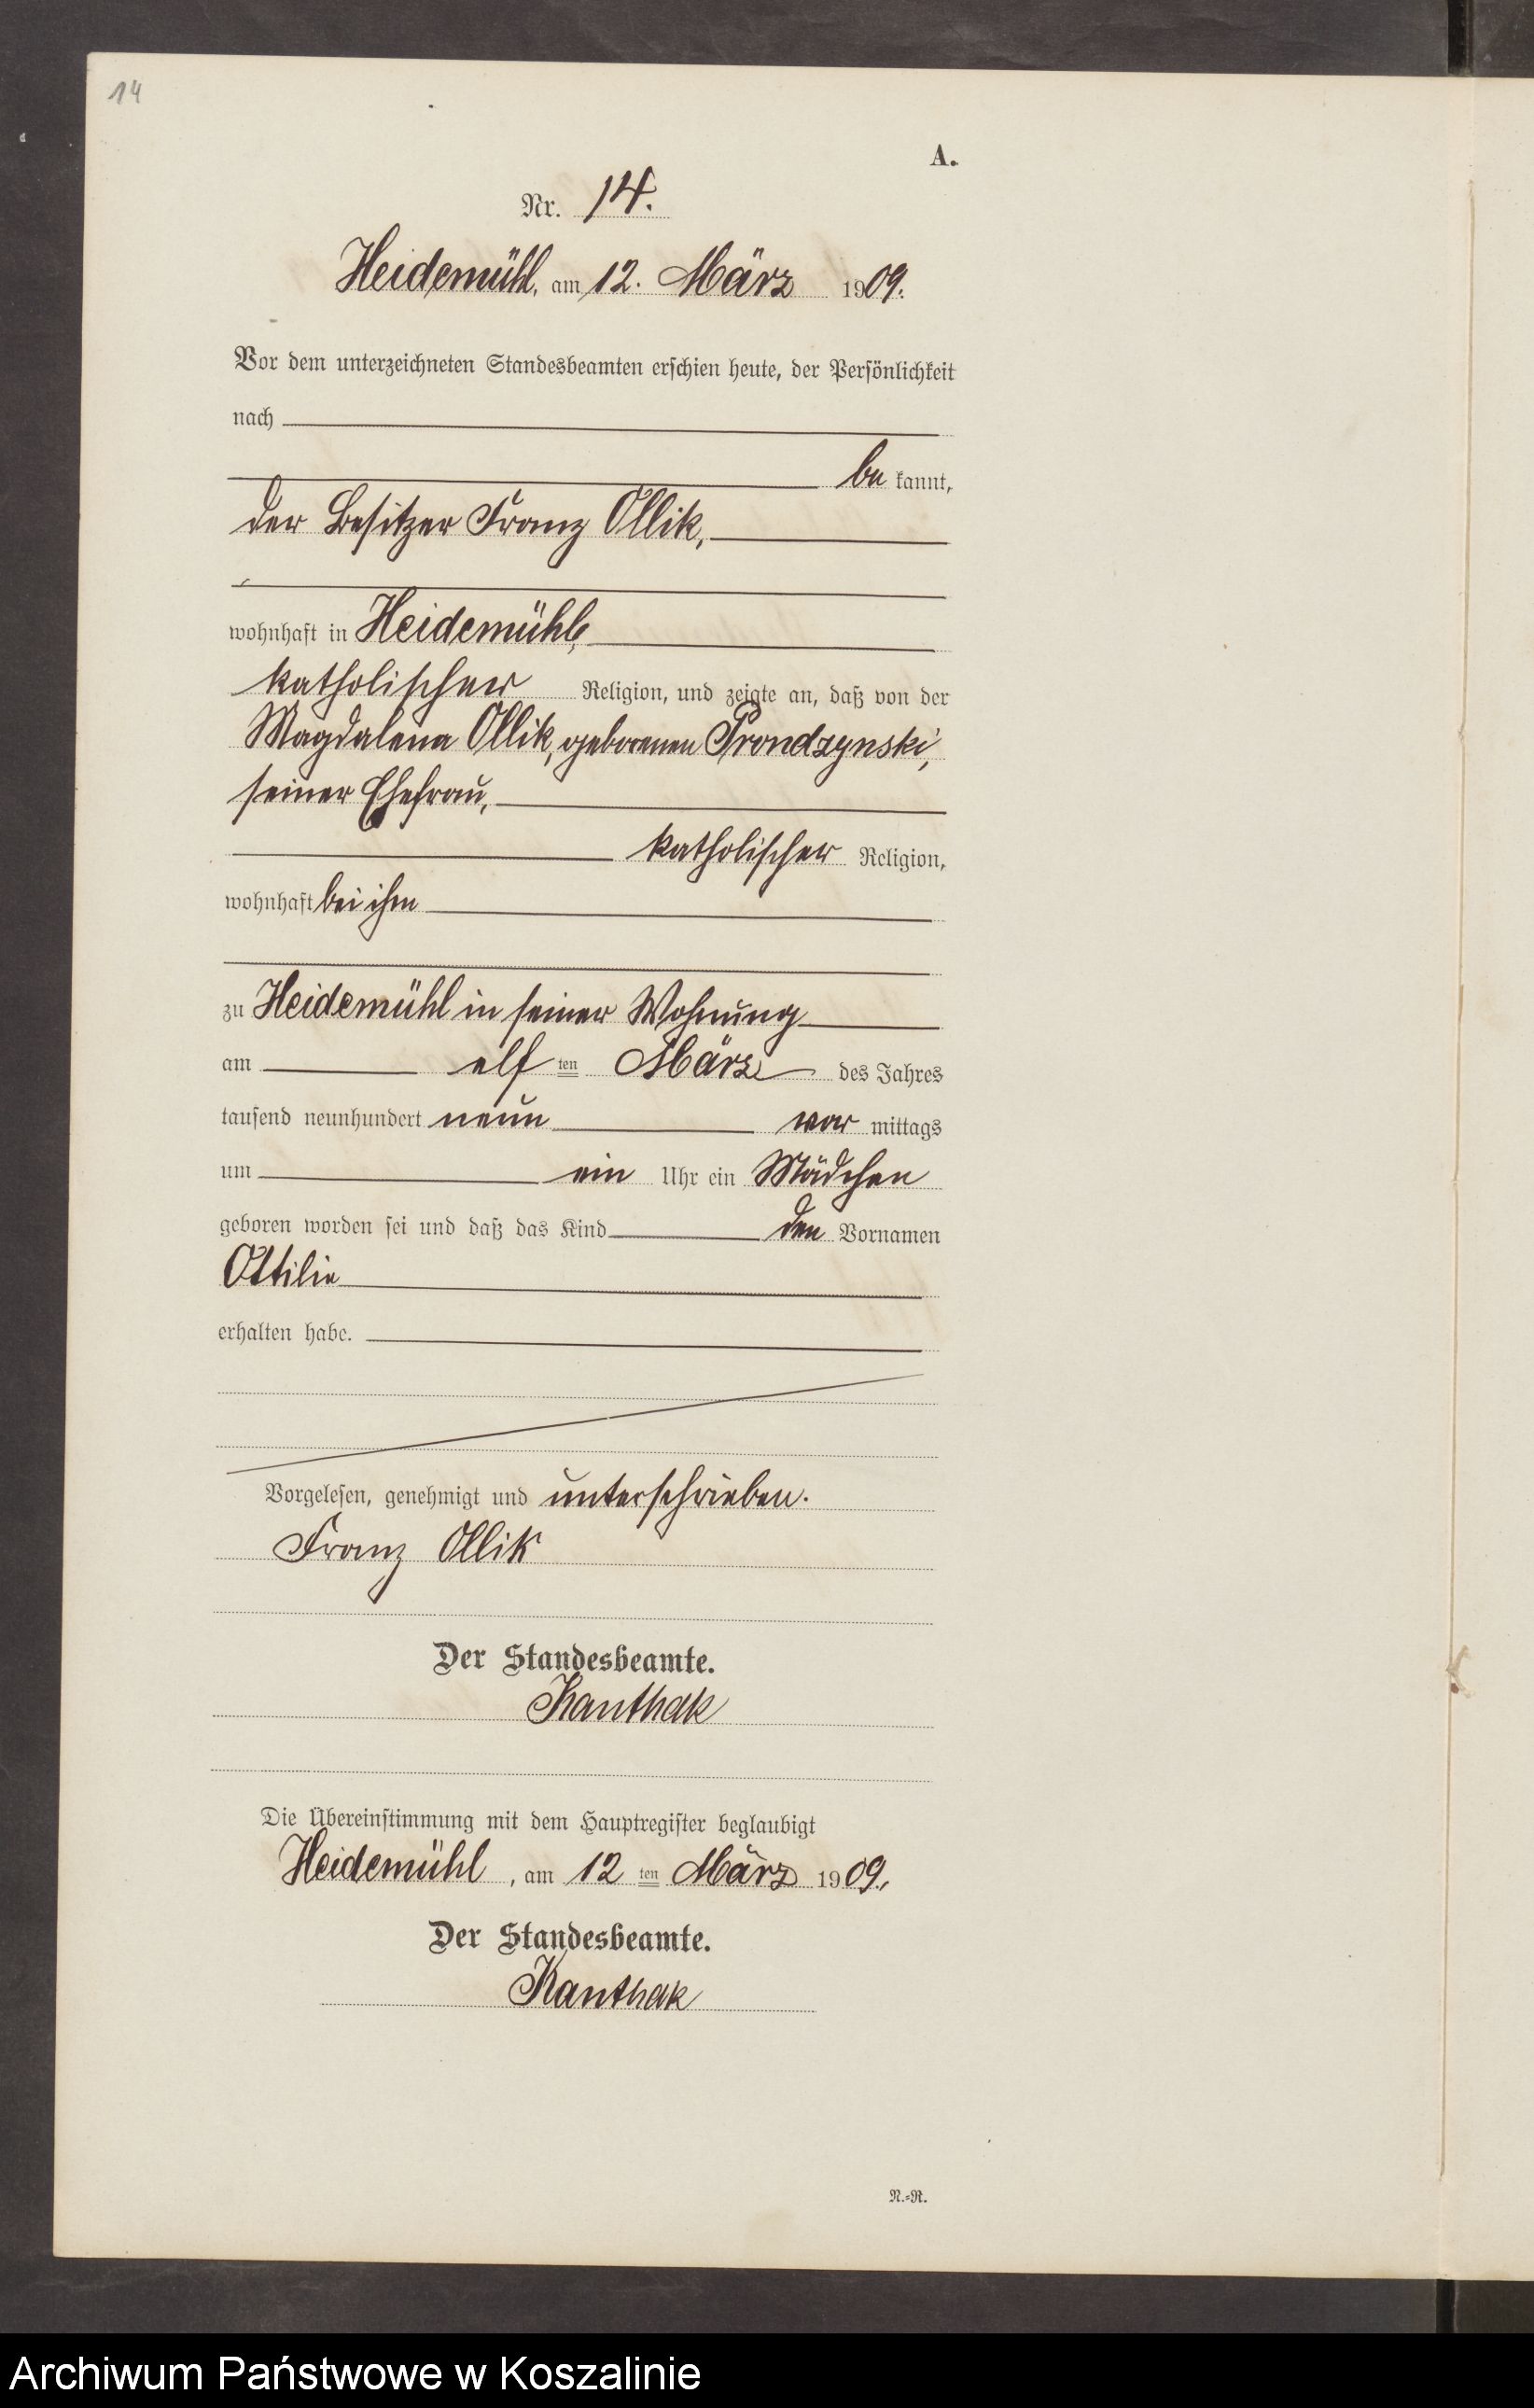 14
A.
Nr. 14.
Heidemühl, am 12. März 1909.
Vor dem unterzeichneten Standesbeamten erschien heute, der Persönlichkeit
nach
be kannt,
der Besitzer Franz Ollik,
wohnhaft in Heidemühl,
katholischer Religion, und zeigte an, daß von der
Magdalena Ollik, geborenen Prondzynski,
seiner Ehefrau,
katholischer Religion,
wohnhaft bei ihm
zu Heidemühl in seiner Wohnung
am elf ten März des Jahres
tausend neunhundert neun vor mittags
um ein Uhr ein Mädchen
geboren worden sei und daß das Kind den Vornamen
Ottilie
erhalten habe.
Vorgelesen, genehmigt und unterschrieben.
Franz Ollik
Der Standesbeamte.
Kanthak
Die Übereinstimmung mit dem Hauptregister beglaubigt
Heidemühl, am 12 ten März 1909.
Der Standesbeamte.
Kanthak
N.=R.
Archiwum Państwowe w Koszalinie